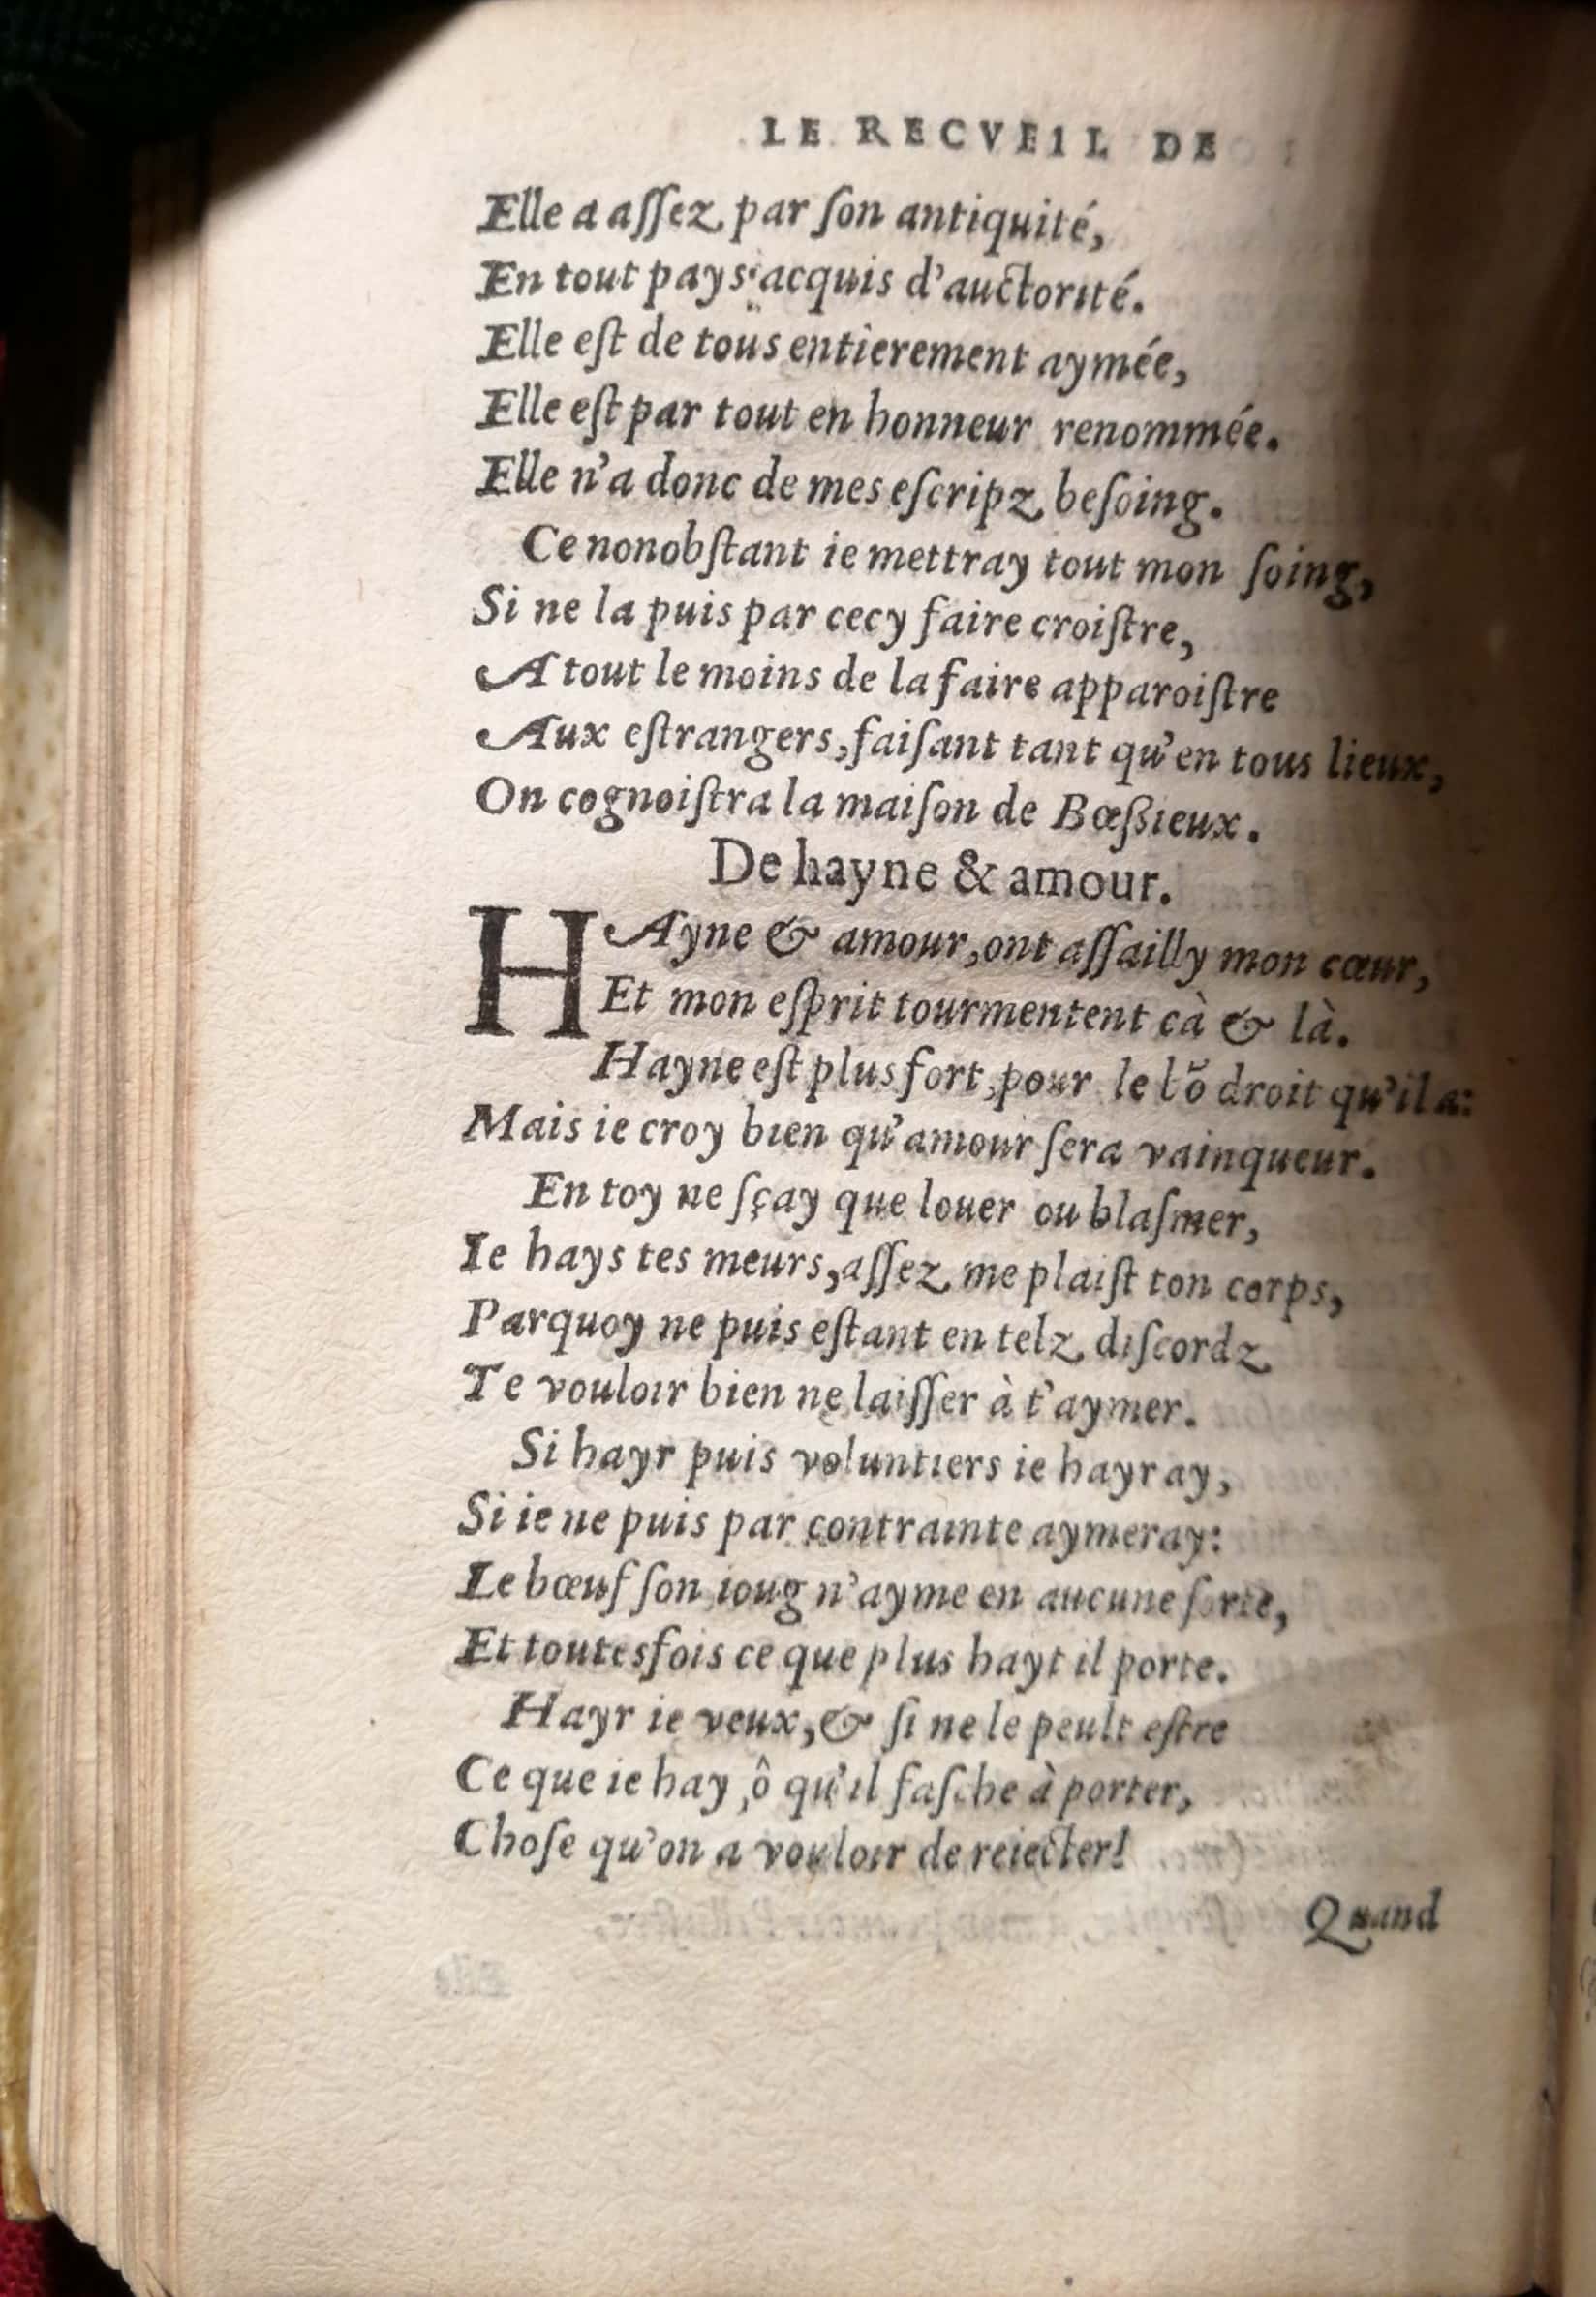 LE RECVEIL DE
Elle a aſſez par ſon antiquité,
En tout pays acquis d'auctorité.
Elle eſt de tous entierement aymée,
Elle eſt par tout en honneur renommée.
Elle n'a donc de mes eſcripz beſoing.
Ce nonobſtant ie mettray tout mon ſoing,
Si ne la puis par cecy faire croiſtre,
A tout le moins de la faire apparoiſtre
Aux eſtrangers, faiſant tant qu'en tous lieux,
On cognoiſtra la maiſon de Bœſsieux.
De hayne & amour.
HAyne & amour, ont aſſailly mon cœur,
Et mon eſprit tourmentent cà & là.
Hayne eſt plus fort, pour le bõ droit qu'il a:
Mais ie croy bien qu'amour ſera vainqueur.
En toy ne ſçay que louer ou blaſmer,
Ie hays tes meurs, aſſez me plaiſt ton corps,
Parquoy ne puis eſtant en telz diſcordz
Te vouloir bien ne laiſſer à t'aymer.
Si hayr puis voluntiers ie hayray,
Si ie ne puis par contrainte aymeray:
Le bœuf ſon ioug n'ayme en aucune ſorte,
Et toutesfois ce que plus hayt il porte.
Hayr ie veux, & ſi ne le peult eſtre
Ce que ie hay, ô qu'il faſche à porter,
Choſe qu'on a vouloir de reiecter!
Quand